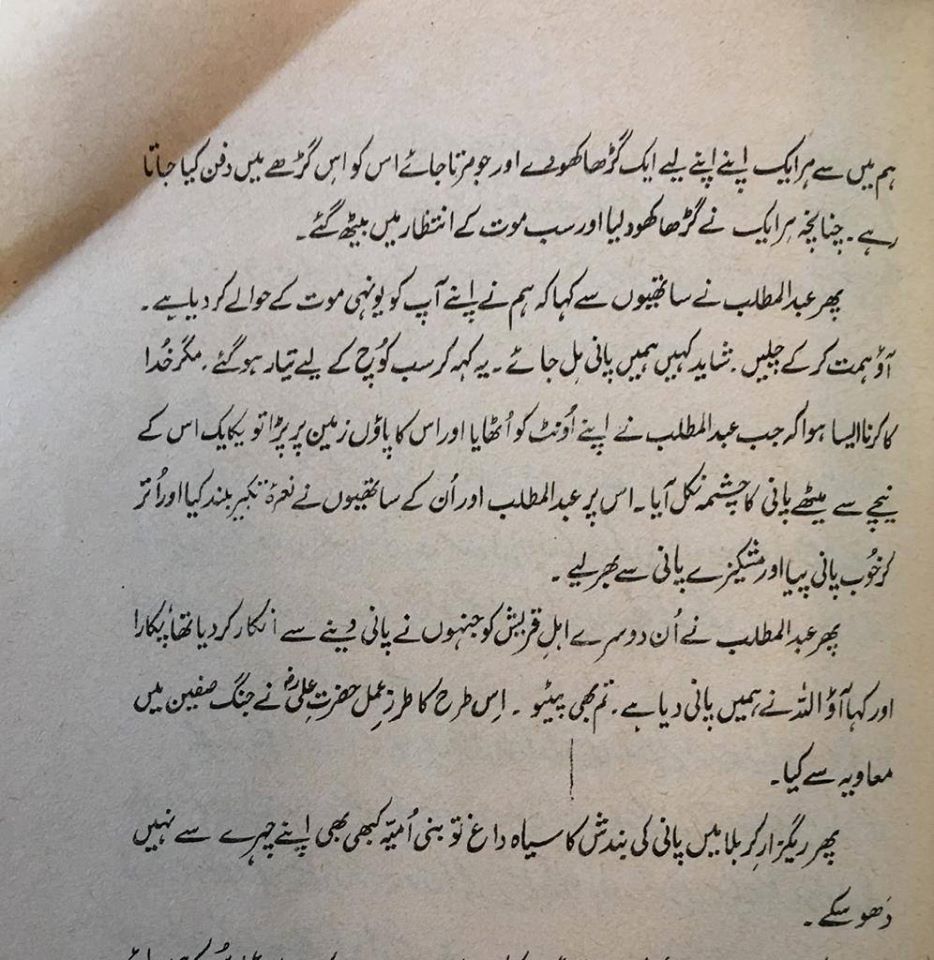 ہم میں سے ہر ایک اپنے اپنے لیے ایک گڑھا کھودے اور جو مرتا جائے اس کو اِس گڑھے میں دفن کیا جاتا
رہے۔ چنانچہ ہر ایک نے گڑھا کھود لیا اور سب موت کے انتظار میں بیٹھ گئے۔
پھر عبدالمطلب نے ساتھیوں سے کہا کہ ہم نے اپنے آپ کو یونہی موت کے حوالے کر دیا ہے۔
آؤ ہمت کر کے چلیں۔ شاید کہیں ہمیں پانی مِل جائے۔ یہ کہہ کر سب کُوچ کے لیے تیار ہو گئے۔ مگر خُدا
کا کرنا ایسا ہوا کہ جب عبدالمطلب نے اپنے اُونٹ کو اُٹھایا اور اس کا پاؤں زمین پر پڑا تو یکایک اس کے
نیچے سے میٹھے پانی کا چشمہ نکل آیا۔ اس پر عبدالمطلب اور اُن کے ساتھیوں نے نعرۂ تکبیر بلند کیا اور اُتر
کر خُوب پانی پیا اور مشکیزے پانی سے بھر لیے۔
پھر عبدالمطلب نے اُن دوسرے اہلِ قریش کو جنہوں نے پانی دینے سے انکار کر دیا تھا پُکارا
اور کہا آؤ اللہ نے ہمیں پانی دیا ہے۔ تم بھی پیئو۔ اِس طرح کا طرزِ عمل حضرت علیؓ نے جنگ صفین میں
معاویہ سے کیا۔
پھر ریگزارِ کربلا میں پانی کی بندش کا سیاہ داغ تو بنی اُمیّہ کبھی بھی اپنے چہرے سے نہیں
دَھو سکے۔